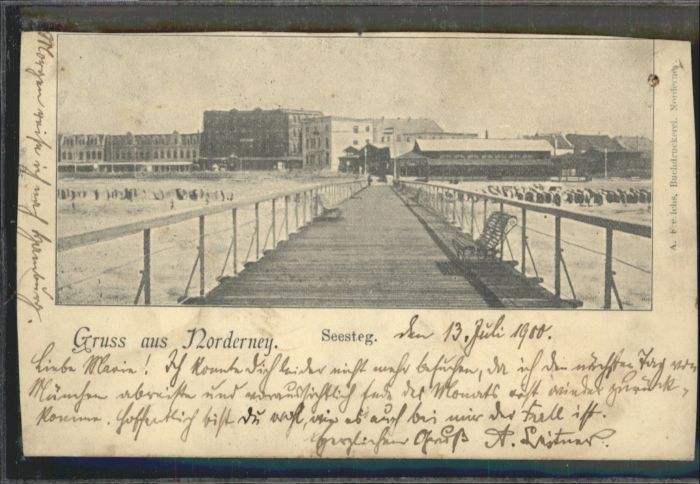 Gruss aus Norderney. Seesteg. den 13. Juli 1900.
Liebe Marie! Ich konnte Dich leider nicht mehr besuchen, da ich den nächsten Tag von
München abreiste und voraussichtlich Ende des Monats erst wieder zurück-
komme. Hoffentlich bist du wohl, wie es auch bei mir der Fall ist.
Herzlichen Gruß A.
Morgen reise ich nach Hamburg.
Buchdruckerei, Norderney.